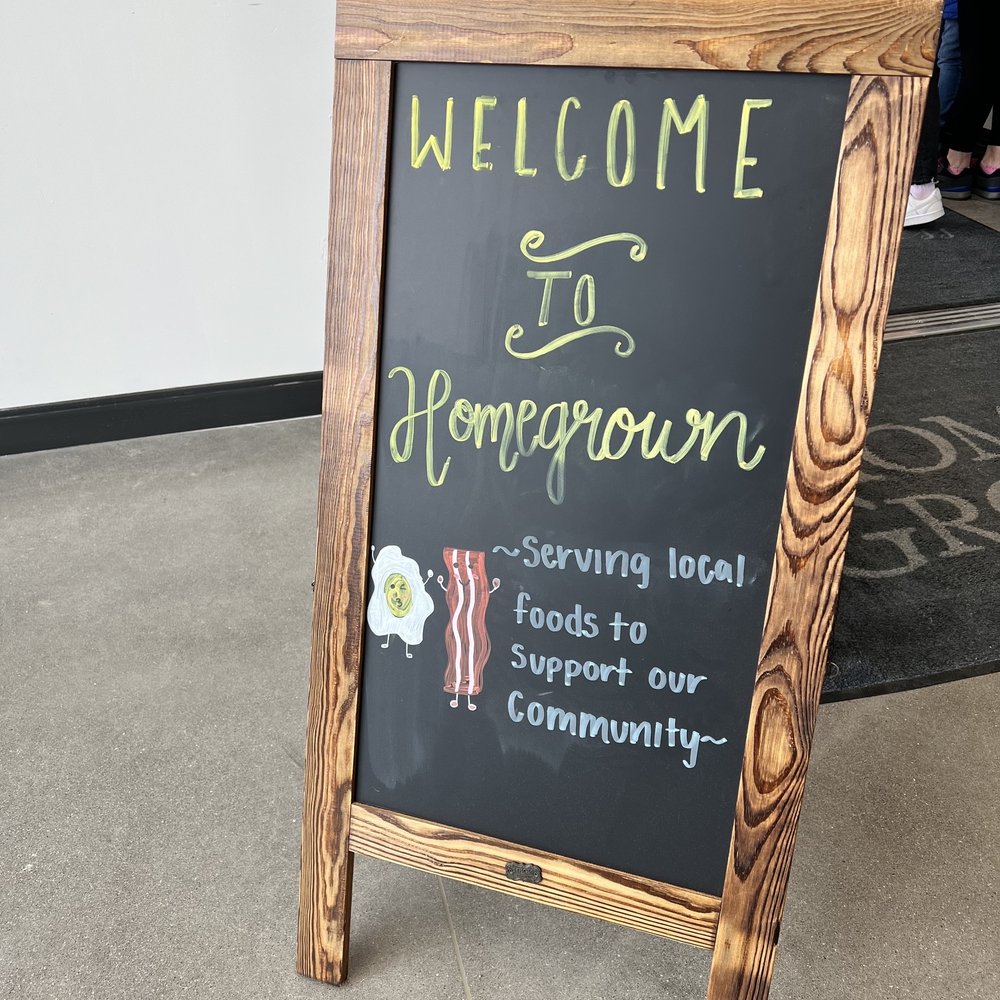 WELCOME
TO
Homegrown
~Serving local
foods to
Support our
Community~